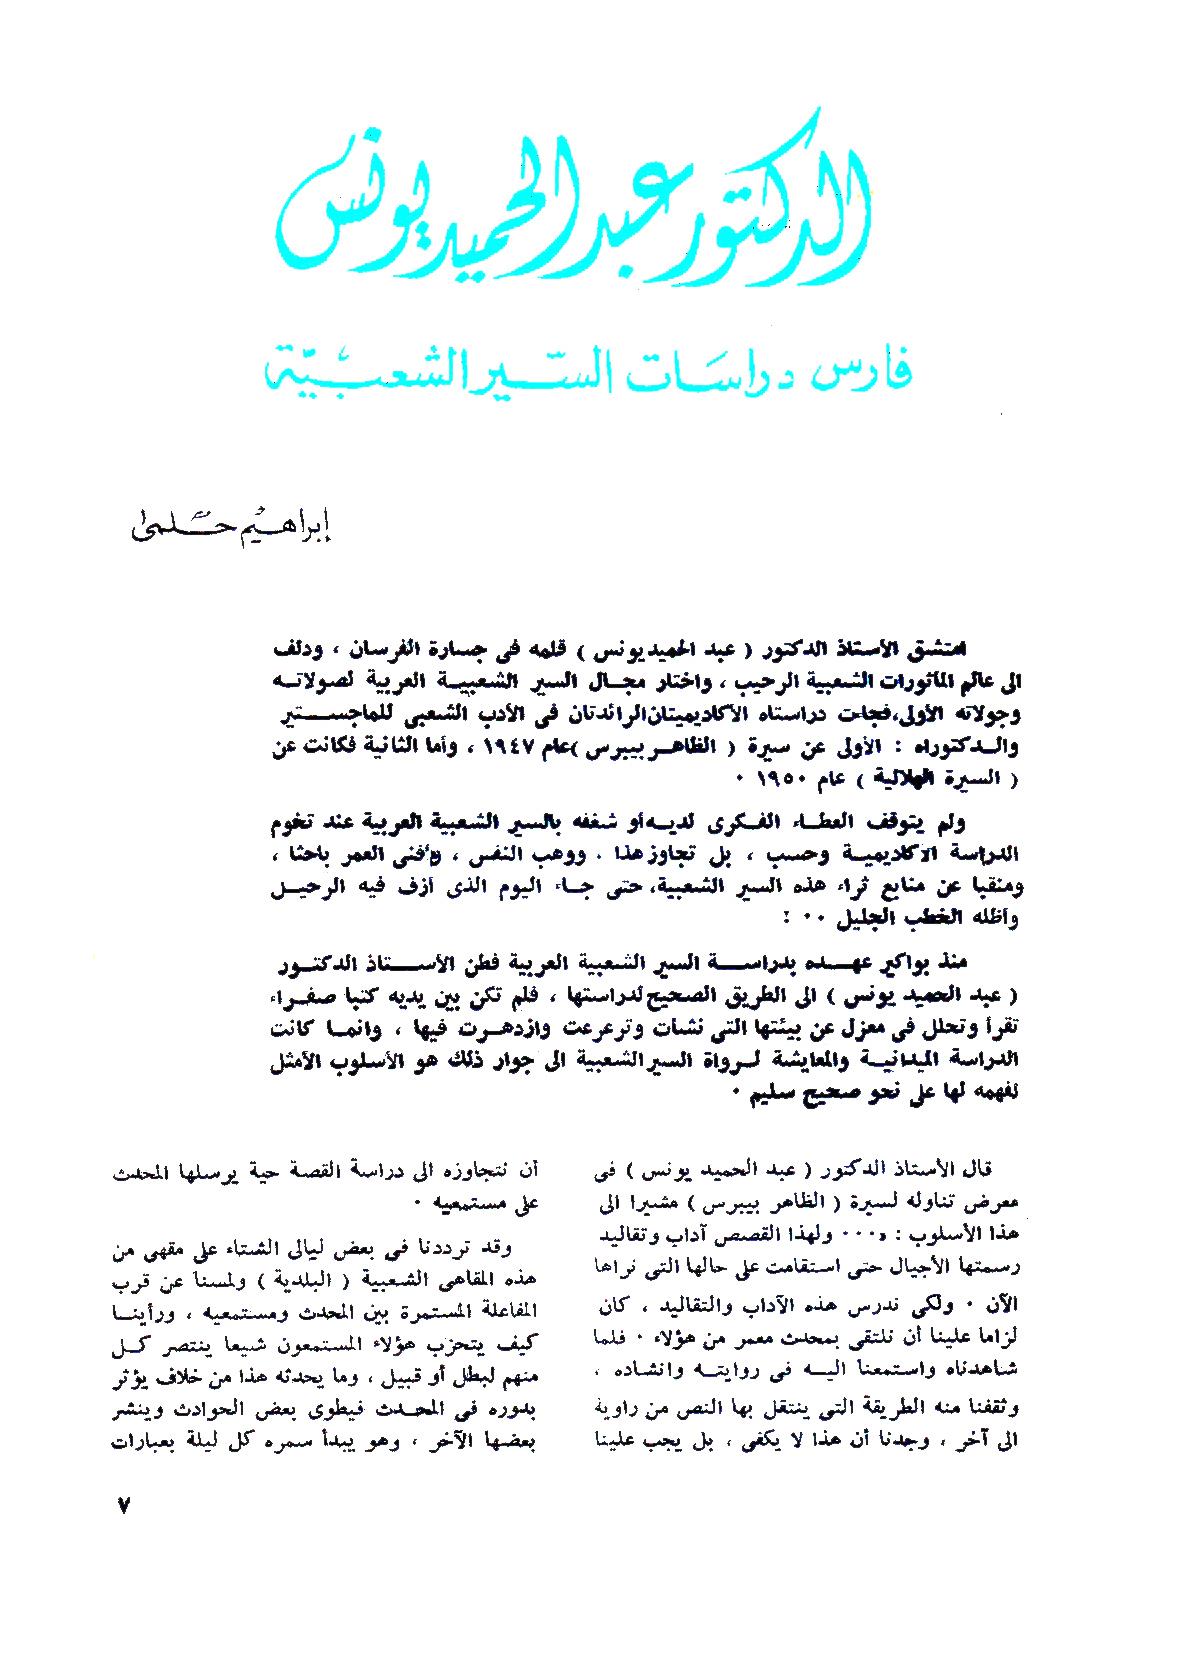 الدكتور عبد الحميد يونس
فارس دراسات السير الشعبية
إبراهيم حلمى
امتشق الأستاذ الدكتور ( عبد الحميد يونس ) قلمه فى جسارة الفرسان ، ودلف
الى عالم المأثورات الشعبية الرحيب ، واختار مجال السير الشعبية العربية لصولاته
وجولاته الأولى، فجاءت دراستاه الأكاديميتان الرائدتان فى الأدب الشعبى للماجستير
والدكتوراه : الأولى عن سيرة ( الظاهر بيبرس )عام ١٩٤٧ ، وأما الثانية فكانت عن
( السيرة الهلالية ) عام ١٩٥٠ ٠
ولم يتوقف العطاء الفكرى لديه أو شغفه بالسير الشعبية العربية عند تخوم
الدراسة الأكاديمية وحسب ، بل تجاوز هذا ٠ ووهب النفس ، وأفنى العمر باحثا ،
ومنقبا عن منابع ثراء هذه السير الشعبية، حتى جاء اليوم الذى أزف فيه الرحيل
وأظله الخطب الجليل ٠٠ :
منذ بواكير عهده بدراسة السير الشعبية العربية فطن الأستاذ الدكتور
( عبد الحميد يونس ) الى الطريق الصحيح لدراستها ، فلم تكن بين يديه كتبا صفراء
تقرأ وتحلل فى معزل عن بيئتها التى نشأت وترعرعت وازدهرت فيها ، وانما كانت
الدراسة الميدانية والمعايشة لرواة السير الشعبية الى جوار ذلك هو الأسلوب الأمثل
لفهمه لها على نحو صحيح سليم ٠
قال الأستاذ الدكتور ( عبد الحميد يونس ) فى
معرض تناوله لسيرة ( الظاهر بيبرس ) مشيرا الى
هذا الأسلوب : «٠٠٠ ولهذا القصص آداب وتقاليد
رسمتها الأجيال حتى استقامت على حالها التى نراها
الآن ٠ ولكى ندرس هذه الآداب والتقاليد ، كان
لزاما علينا أن نلتقى بمحدث معمر من هؤلاء ٠ فلما
شاهدناه واستمعنا اليه فى روايته وانشاده ،
وثقفنا منه الطريقة التى ينتقل بها النص من راوية
الى آخر ، وجدنا أن هذا لا يكفى ، بل يجب علينا
أن نتجاوزه الى دراسة القصة حية يرسلها المحدث
على مستمعيه ٠
وقد ترددنا فى بعض ليالى الشتاء على مقهى من
هذه المقاهى الشعبية ( البلدية ) ولمسنا عن قرب
المفاعلة المستمرة بين المحدث ومستمعيه ، ورأينا
كيف يتحزب هؤلاء المستمعون شيعا ينتصر كل
منهم لبطل أو قبيل ، وما يحدثه هذا من خلاف يؤثر
بدوره فى المحدث فيطوى بعض الحوادث وينشر
بعضها الآخر ، وهو يبدأ سمره كل ليلة بعبارات
٧